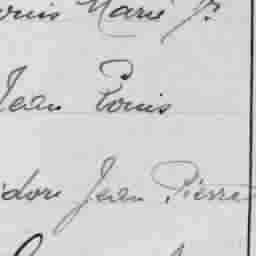 ouis Marie Jh
Jean Louis
idore Jean Pierre